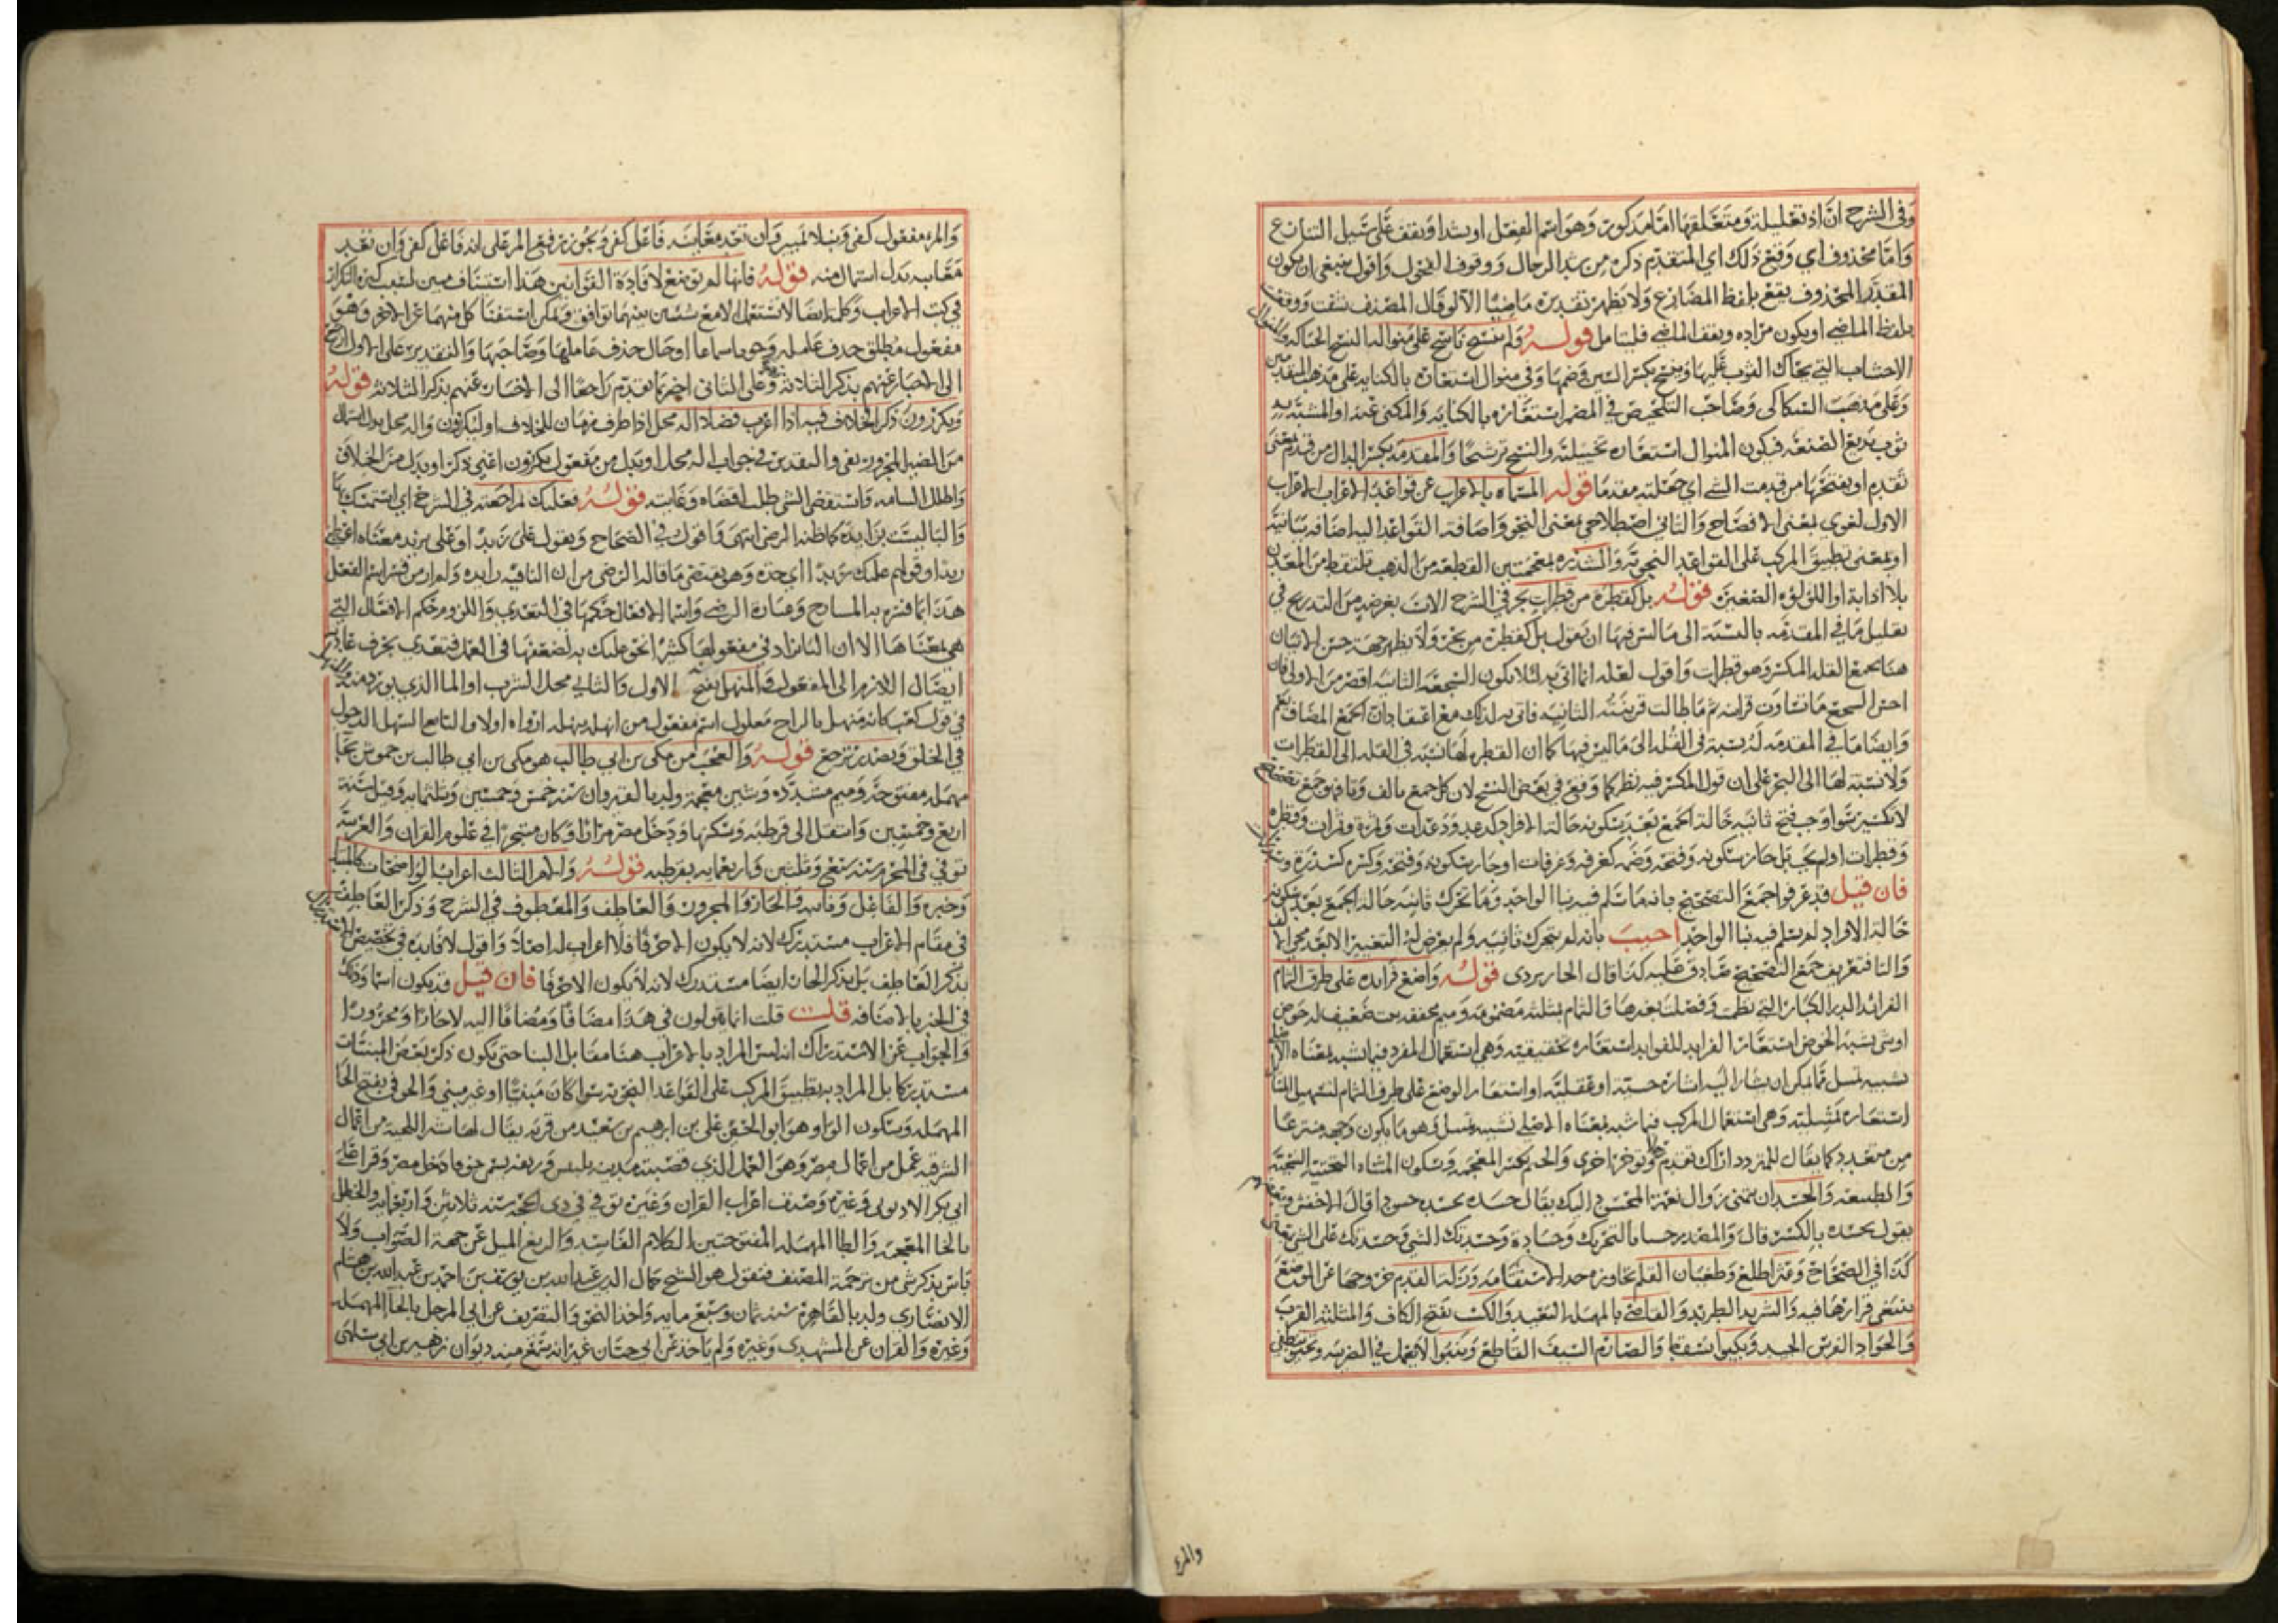 وفي الشرح ان اذ تعليلية ومتعلقها اما مذكور وهو اسم الفعل او شدا ويقف على سبيل التنازع
واما محذوف اي وقع ذلك اي المتقدم ذكره من شد الرحال ووقوف الفحول واقول ينبغي ان يكون
المقدر المحذوف يقع بلفظ المضارع ولا يظهر تقديره ماضيا الا لو قال المصنف شدت ووقفت
بلفظ الماضي او يكون مراده ويقف الماضي فليتامل قوله ولم ينسج ناسج على منوالها النسج الحياكة والمنوال
الاخشاب التي يحاك الثوب عليها وينسج بكسر السين وضمها وفي منوال استعارة بالكناية على مذهب المتقدمين
وعلى مذهب السكاكي وصاحب التلخيص في المضمر استعارة بالكناية والمكني عنه او المشبه به
ثوب بديع الصنعة فيكون المنوال استعارة تخييلية والنسج ترشيحا والمقدمة بكسر الدال من قدم بمعنى
تقدم او بفتحها من قدمت الشي اي جعلته مقدما قوله المسماة بالاعراب عن قواعد الاعراب الاعراب
الاول لغوي بمعنى الافصاح والثاني اصطلاحي بمعنى النحو واضافة القواعد اليه اضافة بيانية
او بمعنى تطبيق المركب على القواعد النحوية والشذره بمعجمتين القطعة من الذهب تلتقط من المعدن
بلا اذابة او اللؤلؤة الصغيرة قوله بل كقطرة من قطرات بحر في الشرح الات بغرضه من التدريج في
تقليل ما في المقدمة بالنسبة الى ما ليس فيها ان يقول بل كقطرة من بحر ولا يظهر جهة حسن الاتيان
هنا بجمع القلة المكسر وهو قطرات واقول لعله انما اتى به لئلا يكون السجعة الثانية اقصر من الاولى فان
احسن السجع ما تساوت قرائنه ثم ما طالت قرينته الثانية فاتى به لذلك مع اعتقاد ان الجمع المضاف يعم
وايضا ما في المقدمة له نسبة في القلة الى ما ليس فيها كما ان القطرة لها نسبة في القلة الى القطرات
ولا نسبة لها الى البحر على ان قول المكسر فيه نظر كما وقع في بعض النسخ لان كل جمع بالف وتا فهو جمع تصحيح
لا تكسير سوا وجب فتح ثانيه حالة الجمع بعد سكونه حالة الافراد كدعد ودعدات وثمرة وثمرات وقطرة
وقطرات او لم يجب بل جاز سكونه وفتحه وضمه كغرفة وغرفات او جاز سكونه وفتحه وكسره كسدرة وسدرات
فان قيل قد عرفوا جمع التصحيح بانه ما سلم فيه بنا الواحد وما تحرك ثانيه حالة الجمع بعد سكونه
حالة الافراد لم يسلم فيه بنا الواحد اجيب بانه لم يتحرك ثانيه ولم يعرض له التغيير الا بعد مجي الالف
والتا فتعريف جمع التصحيح صادق عليه كذا قال الجاربردي قوله واضع فرايده على طرف الثمام
الفرائد الدرر الكبار التي نظمت وفصلت بغيرها والثمام بمثلثة مضمومة وميم مخففة نبت ضعيف له خوص
او شي يشبه الخوص استعار الفرايد للفوايد استعارة تحقيقية وهي استعمال المفرد فيما شبه بمعناه الاصلي
تشبيه تمثيل مما يمكن ان يشار اليه اشارة حسية او عقلية او استعار الوضع على طرف الثمام لتسهيل المنال
استعارة تمثيلية وهي استعمال المركب فيما شبه بمعناه الاصلي تشبيه تمثيل وهو ما يكون وجهه منتزعا
من متعدد كما يقال للمتردد اراك تقدم رجلا وتوخر اخرى والخيم بكسر المعجمة وسكون المثناة التحتية السجية
والطبيعة والحسد ان تتمنى زوال نعمة المحسود اليك يقال حسده يحسده حسودا قال الاخفش وبعضهم
يقول يحسده بالكسر قال والمصدر حسدا بالتحريك وحسادة وحسدتك الشي وحسدتك على الشي بمعنى
كذا في الصحاح وعثر اطلع وطغيان القلم تجاوزه حد الاستقامة وزلة القدم خروجها عن الموضع
ينبغي قرارها فيه والشريد الطريد والقاصي بالمهملة البعيد والكثب بفتح الكاف والمثلثة القرب
والجواد الفرس الجيد ويكبوا يسقط والصارم السيف القاطع وينبوا لا يعمل في الضريبة وتخبوا تنطفي
والمرء
والمرء مفعول كفى ونبلا تمييز وان تعد معايبه فاعل كفى ويجوز رفع المرء على انه فاعل كفى وان تعد
معايبه بدل اشتمال منه قوله فانها لم توضع لافادة القوانين هذا استئناف مبين لسبب كثرة التكرار
في كتب الاعراب وكلمة ايضا لا تستعمل الا مع شيئين بينهما توافق ويمكن استغنا كل منهما عن الاخر وهو
مفعول مطلق حذف عامله وجوبا سماعا او حال حذف عاملها وصاحبها والتقدير على الاول ارجع
الى الاخبار عنهم بذكر الثلاثة وعلى الثاني اخبر بما تقدم راجعا الى الاخبار عنهم بذكر الثلاثة قوله
ويكررون ذكر الخلاف فيه اذا اعرب فصلا اله محل اذا ظرف زمان للخلاف او ليكررون واله محل بدل اشتمال
من الضمير المجرور بفي والتقدير في جواب اله محل او بدل من مفعول يكررون اعني ذكر او بدل من الخلاف
واطلل السامة واستقصى الشي طلب اقصاه وغايته قوله فعليك بمراجعته في الشرح اي استمسك بها
والبا ليست بزايدة كما ظنه الرضي انتهى واقول في الصحاح ويقول علي زيدا وعلي بزيد معناه اعطني
زيدا وقولهم عليك زيدا اي خذه وهو يقتضي ما قاله الرضي من ان البا فيه زايدة ولم ار من فسر اسم الفعل
هذا بما فسره به الشارح وعبارة الرضي واسما الافعال حكمها في التعدي واللزوم حكم الافعال التي
هي بمعناها الا ان البا تزاد في مفعولها كثيرا نحو عليك به لضعفها في العمل فتعدى بحرف عادته
ايصال اللازم الى المفعول والمنهل بفتح الاول والثالث محل الشرب او الما الذي يورد منه والمنهل
في قول كعب كانه منهل بالراح معلول اسم مفعول من انهله ينهله ارواه اولا والسائغ السهل الدخول
في الحلق ويصدر يرجع قوله والعجب من مكي بن ابي طالب هو مكي بن ابي طالب بن حموش بحا
مهملة مفتوحة وميم مشددة وشين معجمة ولد بالقيروان سنة خمس وخمسين وثلثماية وقيل سنة
اربع وخمسين وانتقل الى قرطبة وسكنها ودخل مصر مرارا وكان متبحرا في علوم القران والعربية
توفي في المحرم سنة سبع وثلثين واربعماية بقرطبة قوله والامر الثالث اعراب الواضحات كالمبتدا
وخبره والفاعل ونايبه والجار والمجرور والعاطف والمعطوف في الشرح وذكر العاطف
في مقام الاعراب مستدرك لانه لا يكون الا حرفا فلا اعراب له اصلا واقول لا فايدة في تخصيص الاعتراض
بذكر العاطف بل بذكر الجار ايضا مستدرك لانه لا يكون الا حرفا فان قيل قد يكون اسما وذلك
في الجر بالاضافة قلت قلت انما يقولون في هذا مضافا ومضافا اليه لا جارا ومجرورا
والجواب عن الاستدراك انه ليس المراد بالاعراب هنا مقابل البنا حتى يكون ذكر بعض المبنيات
مستدركا بل المراد به تطبيق المركب على القواعد النحوية سوا كان مبنيا او غير مبني والحوفي بفتح الحا
المهملة وسكون الواو هو ابو الحسن علي بن ابرهيم بن سعيد من قرية يقال لها شبرا اللنجة من اعمال
الشرقية عمل من اعمال مصر وهو العمل الذي قصبته مدينة بلبيس وريفه يسمى حوفا دخل مصر وقرا على
ابي بكر الادفوي وغيره وصنف اعراب القران وغيره توفي في ذي الحجة سنة ثلاثين واربعماية والخطل
بالخا المعجمة والطا المهملة المفتوحتين الكلام الفاسد والزيغ الميل عن جهة الصواب ولا
باس بذكر شي من ترجمة المصنف فنقول هو الشيخ جمال الدين عبد الله بن يوسف بن احمد بن عبد الله بن هشام
الانصاري ولد بالقاهرة سنة ثمان وسبع مايه واخذ النحو والتصريف عن ابي المرحل بالحا المهملة
وغيره والقران عن المشهدي وغيره ولم ياخذ عن ابي حيان غير انه سمع منه ديوان زهير بن ابي سلمى